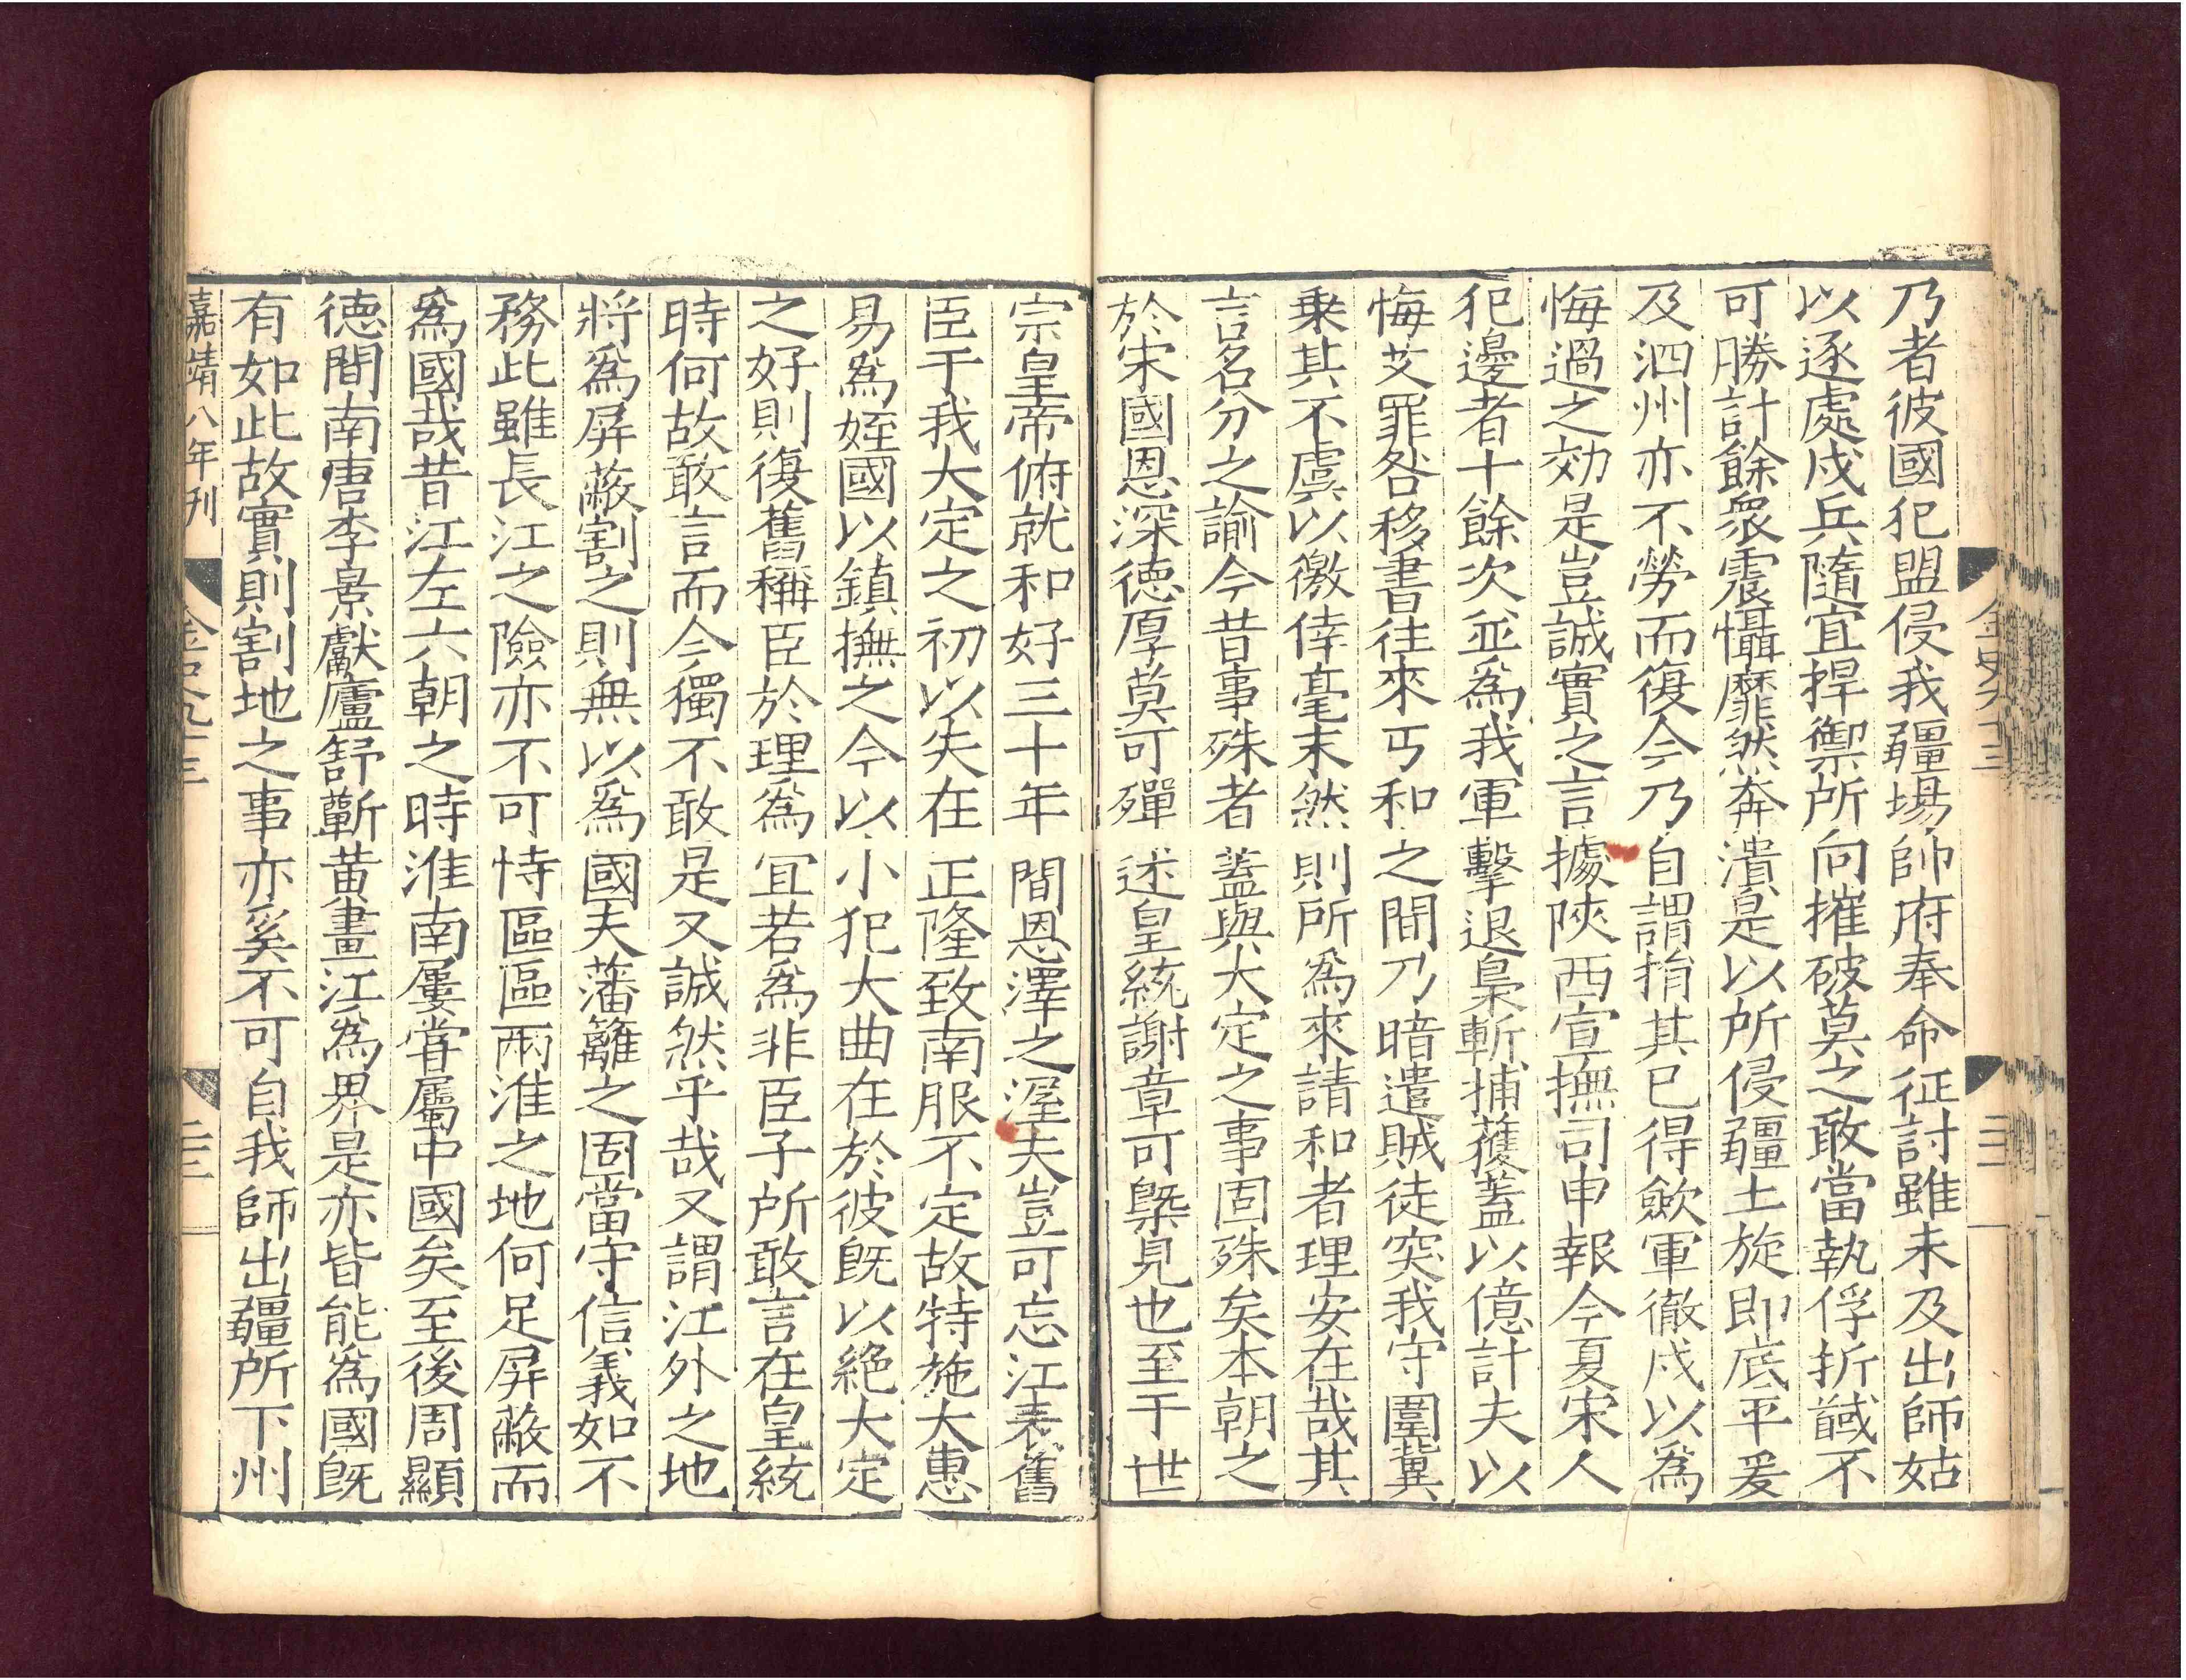 金史九十三
二
乃者彼國犯盟侵我疆場帥府奉命征討雖未及出師姑
以逐處戍兵隨宜捍禦所向摧破莫之敢當執俘折馘不
可勝計餘衆震懾靡然奔潰是以所侵疆土旋即底平爰
及泗州亦不勞而復今乃自謂捐其已得歛軍徹戍以爲
悔過之効是豈誠實之言據陝西宣撫司申報今夏宋人
犯邊者十餘次並爲我軍擊退梟斬捕獲蓋以億計夫以
悔艾罪咎移書往來丐和之間乃暗遣賊徒突我守圍冀
乗其不虞以徼倖毫末然則所爲來請和者理安在哉其
言名分之諭今昔事殊者蓋與大定之事固殊矣本朝之
於宋國恩深德厚莫可殫述皇統謝章可槩見也至于世
宗皇帝俯就和好三十年間恩澤之渥夫豈可忘江表舊
臣于我大定之初以失在正隆致南服不定故特施大惠
易爲姪國以鎮撫之今以小犯大曲在於彼旣以絶大定
之好則復舊稱臣於理爲宜若爲非臣子所敢言在皇統
時何故敢言而今獨不敢是又誠然乎哉又謂江外之地
將爲屏蔽割之則無以爲國夫藩籬之固當守信義如不
務此雖長江之險亦不可恃區區兩淮之地何足屏蔽而
爲國哉昔江左六朝之時淮南屢嘗屬中國矣至後周顯
德間南唐李景獻廬舒蘄黄畫江爲界是亦皆能爲國旣
有如此故實則割地之事亦奚不可自我師出疆所下州
嘉靖八年刊